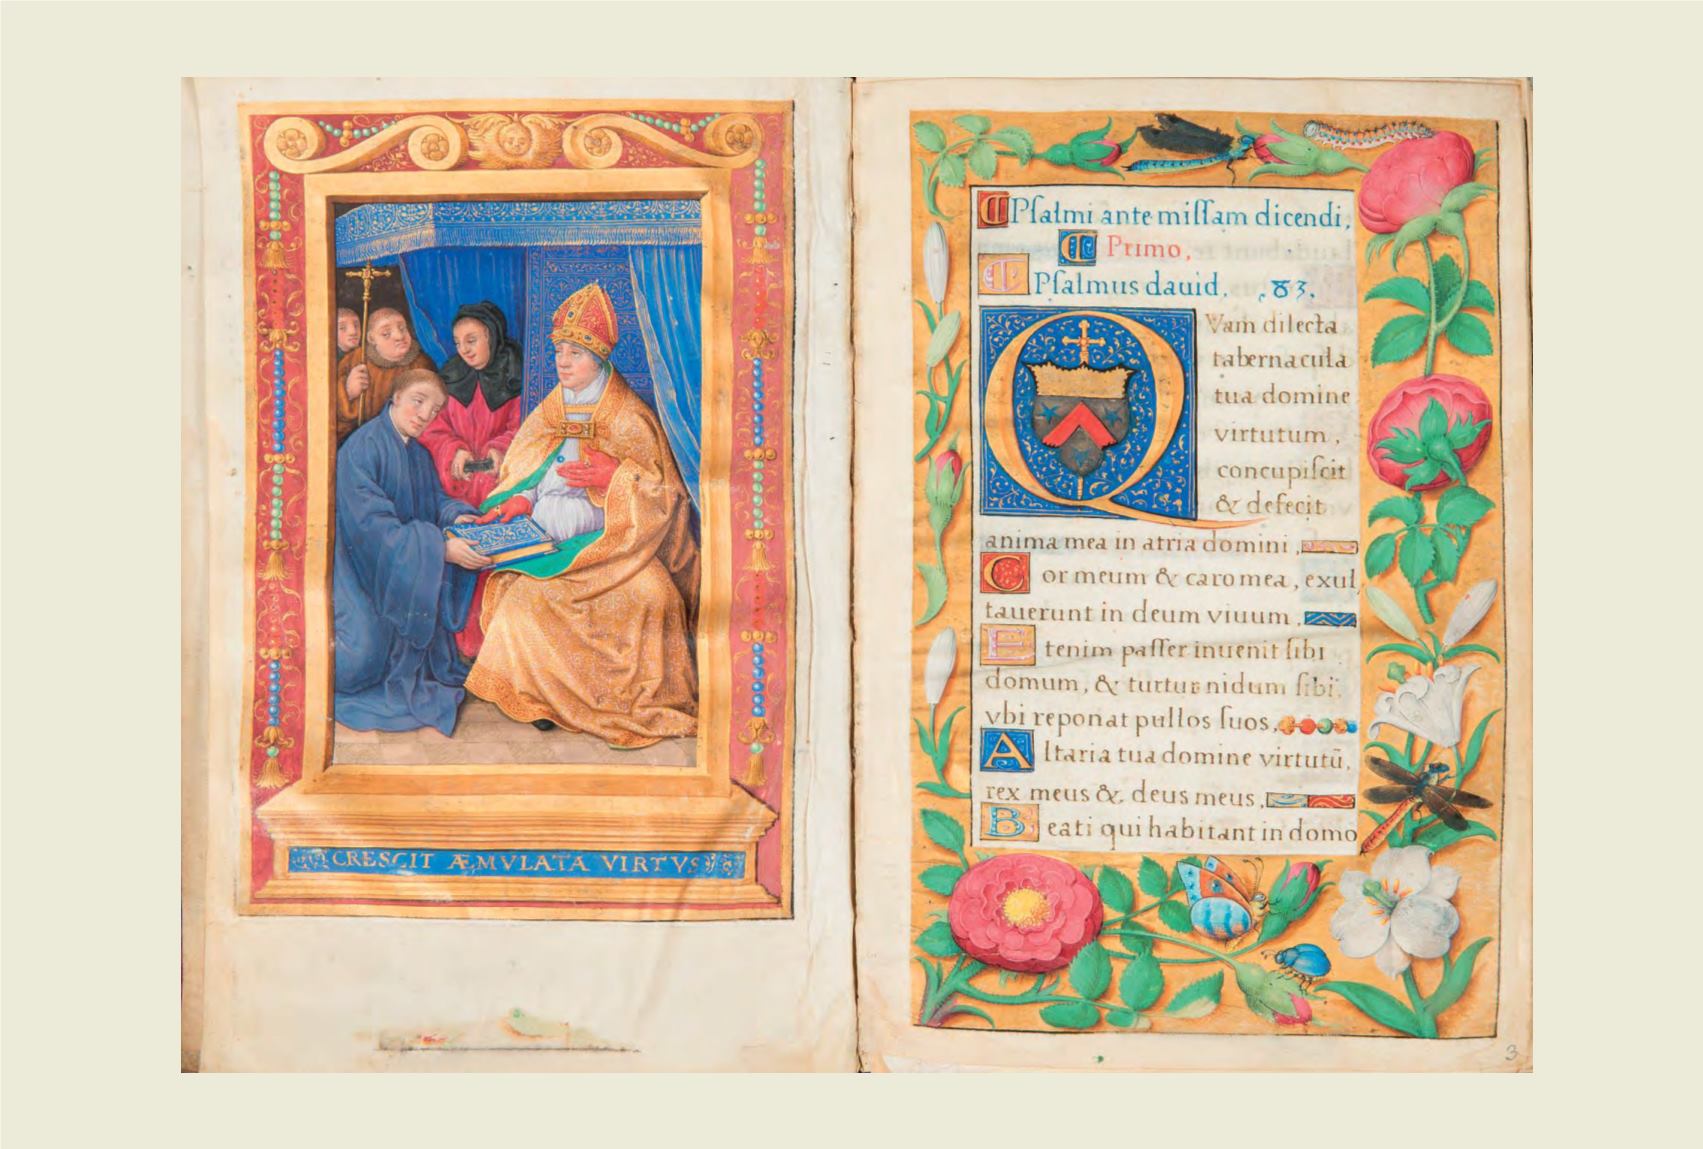 CRESCIT ÆMVLATA VIRTVS
Pſalmi ante miſſam dicendi,
Primo,
Pſalmus dauid. .83.
QVam dilecta
tabernacula
tua domine
virtutum,
concupiſcit
& defecit
anima mea in atria domini,
Cor meum & caro mea, exul
tauerunt in deum viuum,
Etenim paſſer inuenit ſibi
domum, & turtur nidum ſibi,
vbi reponat pullos ſuos,
Altaria tua domine virtutū,
rex meus &, deus meus,
Beati qui habitant in domo
3